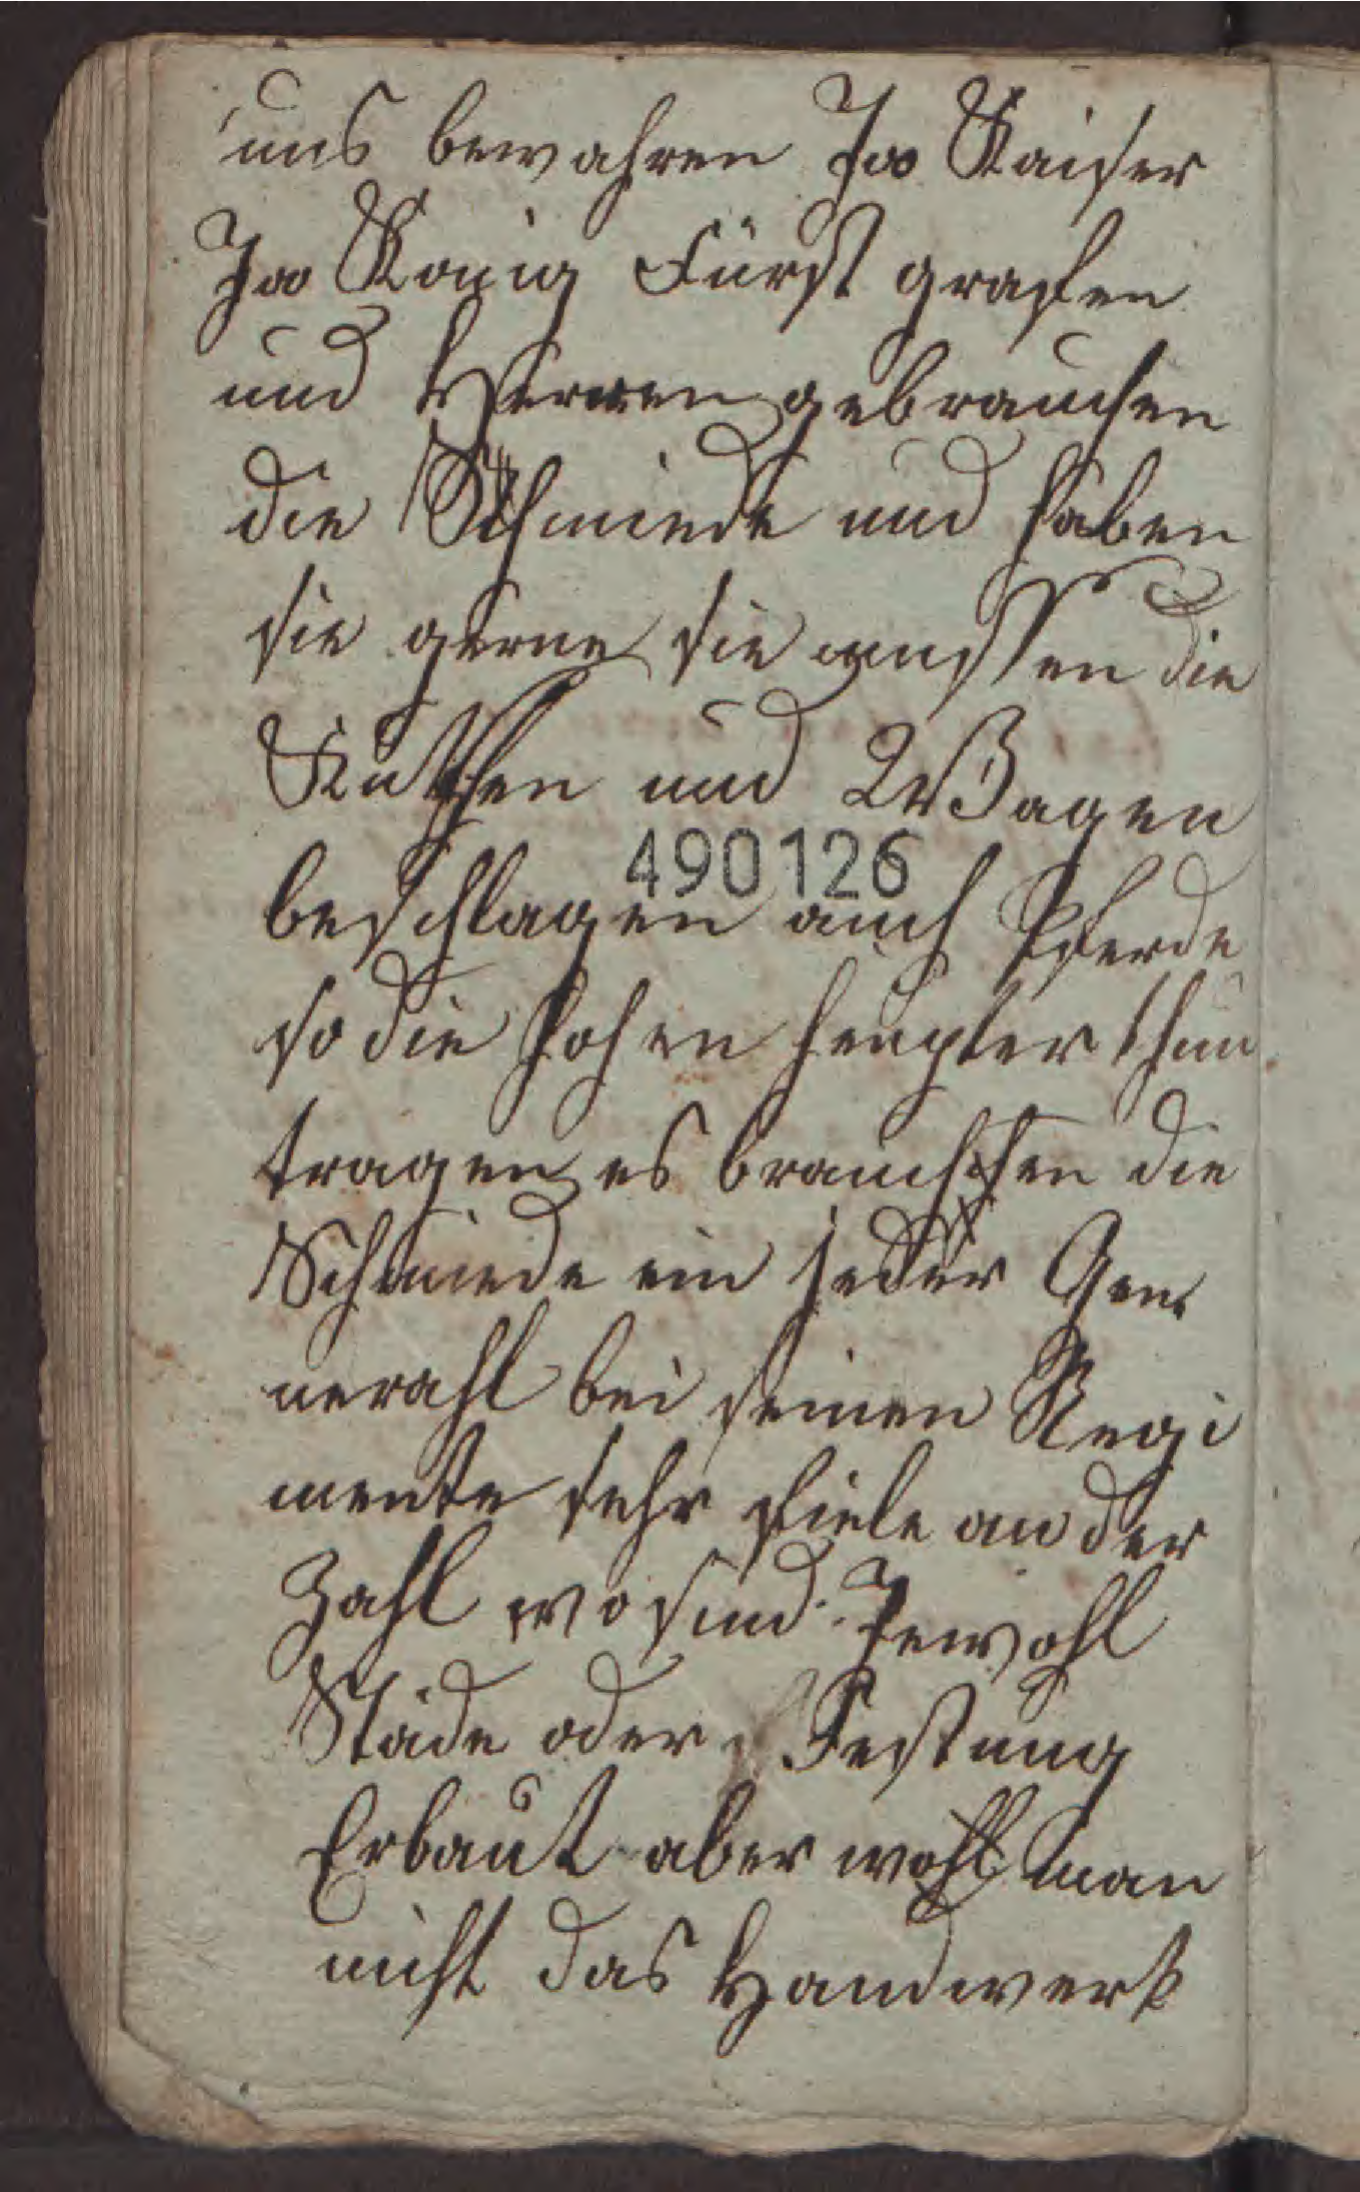 uns bewahren Ja Kaiser
Ja König Fürst grafen
und Herren gebrauchen
die Schmiede und haben
sie gerne sie mussen die
Kutschen und Wagen
490126
beschlagen auch Pferde
so die hohen heupter thun
tragen es brauchen die
Schmiede ein jeder Gene
nerahl bei seinen Regi
mente sehr fiele an der
Zahl wo sind Jewohl
Städe oder Festung
Erbaut aber wohl man
nicht das Handwerk